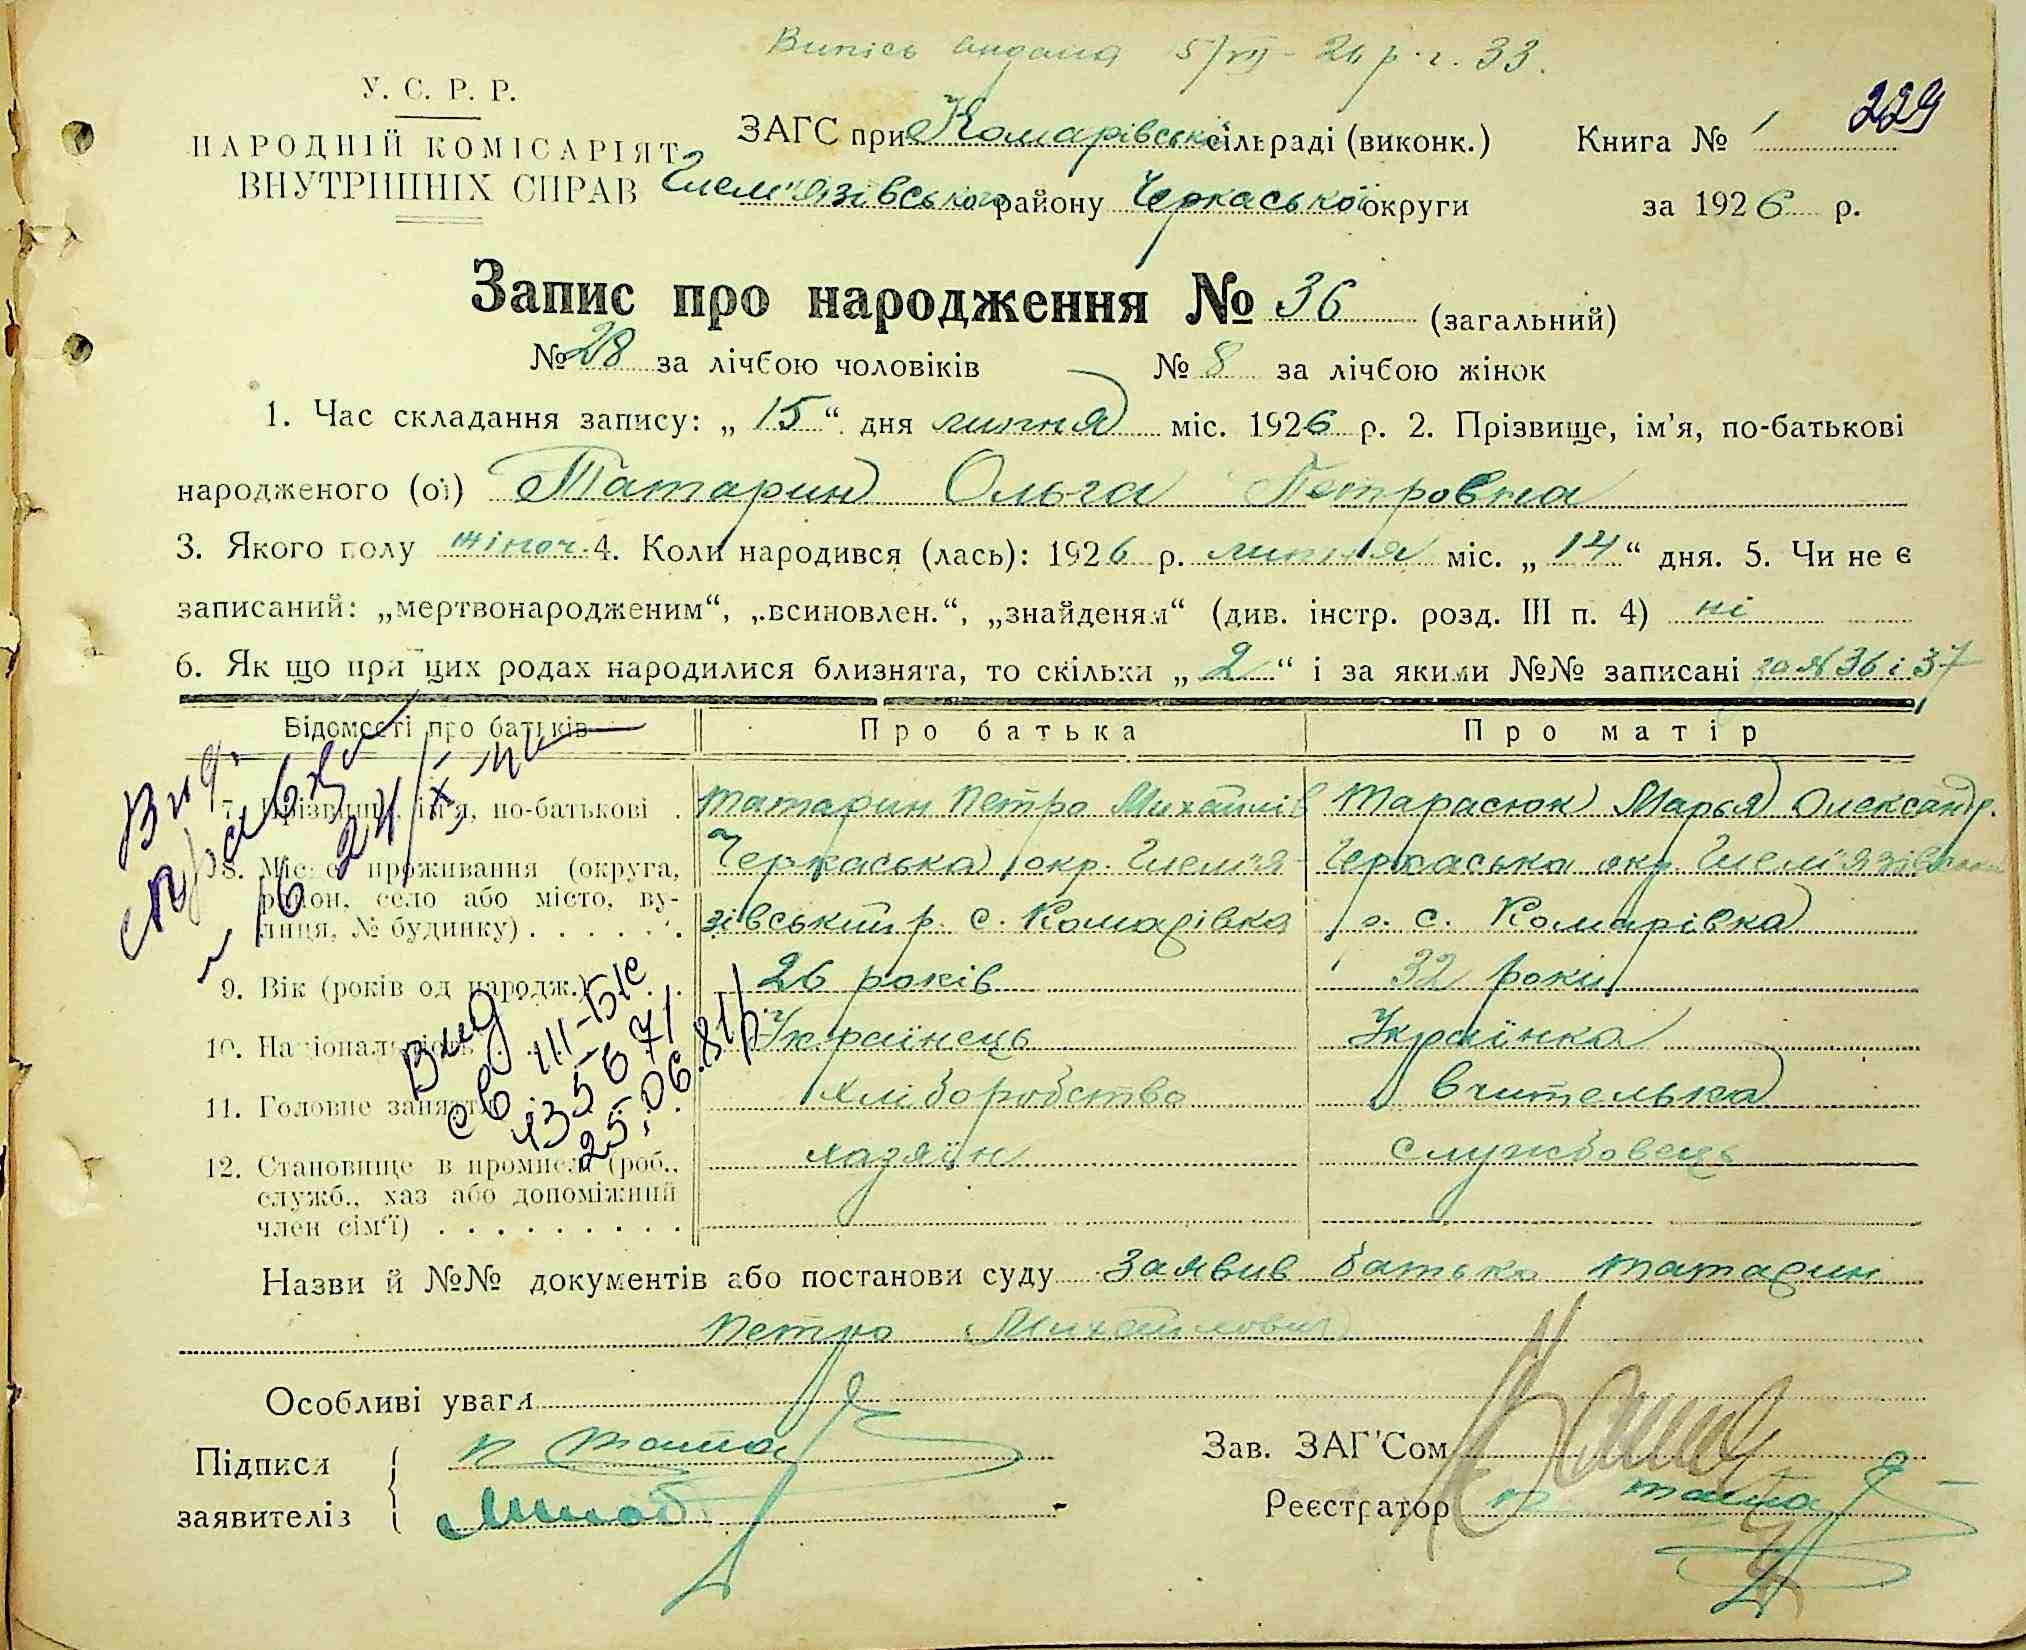 Випісь видана 5/VII - 24 р. г. 33.
У. С. Р. Р.
НАРОДНІЙ КОМІСАРІЯТ
ВНУТРІШНІХ СПРАВ
229
ЗАГС при Комарівськ сільраді (виконк.) Книга № 1
Гмем'язівського району Черкаської округи за 1926 р.
Запис про народження № 36 (загальний)
№ 28 за лічбою чоловіків № 8 за лічбою жінок
1. Час складання запису: „ 15 “ дня липня міс. 1926 р. 2. Прізвище, ім'я, по-батькові
народженого (ої) Татарин Ольга Петровна
3. Якого полу жіноч. 4. Коли народився (лась): 1926 р. липня міс. „ 14 “ дня. 5. Чи не є
записаний: „мертвонародженим“, „всиновлен.“, „знайденям“ (див. інстр. розд. III п. 4) ні
6. Як що при цих родах народилися близнята, то скільки „ 2 “ і за якими №№ записані за № 36 і 37
Відомості про батьків Про батька Про матір
7. Прізвище, ім'я, по-батькові . Татарин Петро Михайлів Тарасюк Марья Олександр.
8. Місце проживання (округа, район, село або місто, вулиця, № будинку) . . . . . .
Черкаська окр. Гмем'я- Черкаська окр. Гмем'язівськ
зівський р. с. Комарівка р. с. Комарівка
9. Вік (років од народж.) . . . 26 років 32 роки
10. Національність Українець Українка
11. Головне заняття хліборобство вчителька
12. Становище в промислі (роб.,
служб., хаз або допоміжний
член сім'ї) . . . . . . . . .
хазяїн службовець
Вид. справку
24/X
Вид
св III-БК
135671
25.06.81р
Назви й №№ документів або постанови суду заявив батько Татарин
Петро Михайлович
Особливі уваги
Підписи
заявителів
Зав. ЗАГ'Сом
Реєстратор